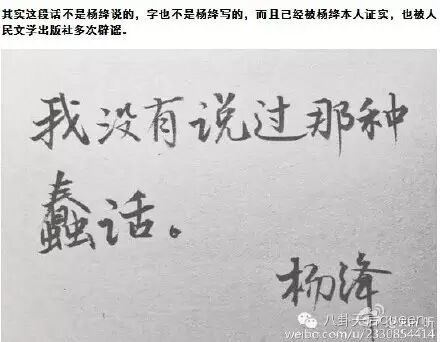 其实这段话不是杨绛说的，字也不是杨绛写的，而且已经被杨绛本人证实，也被人
民文学出版社多次辟谣。
我没有说过那种
蠢话。
杨绛
八卦天后queen
weibo.com/u/2330854414